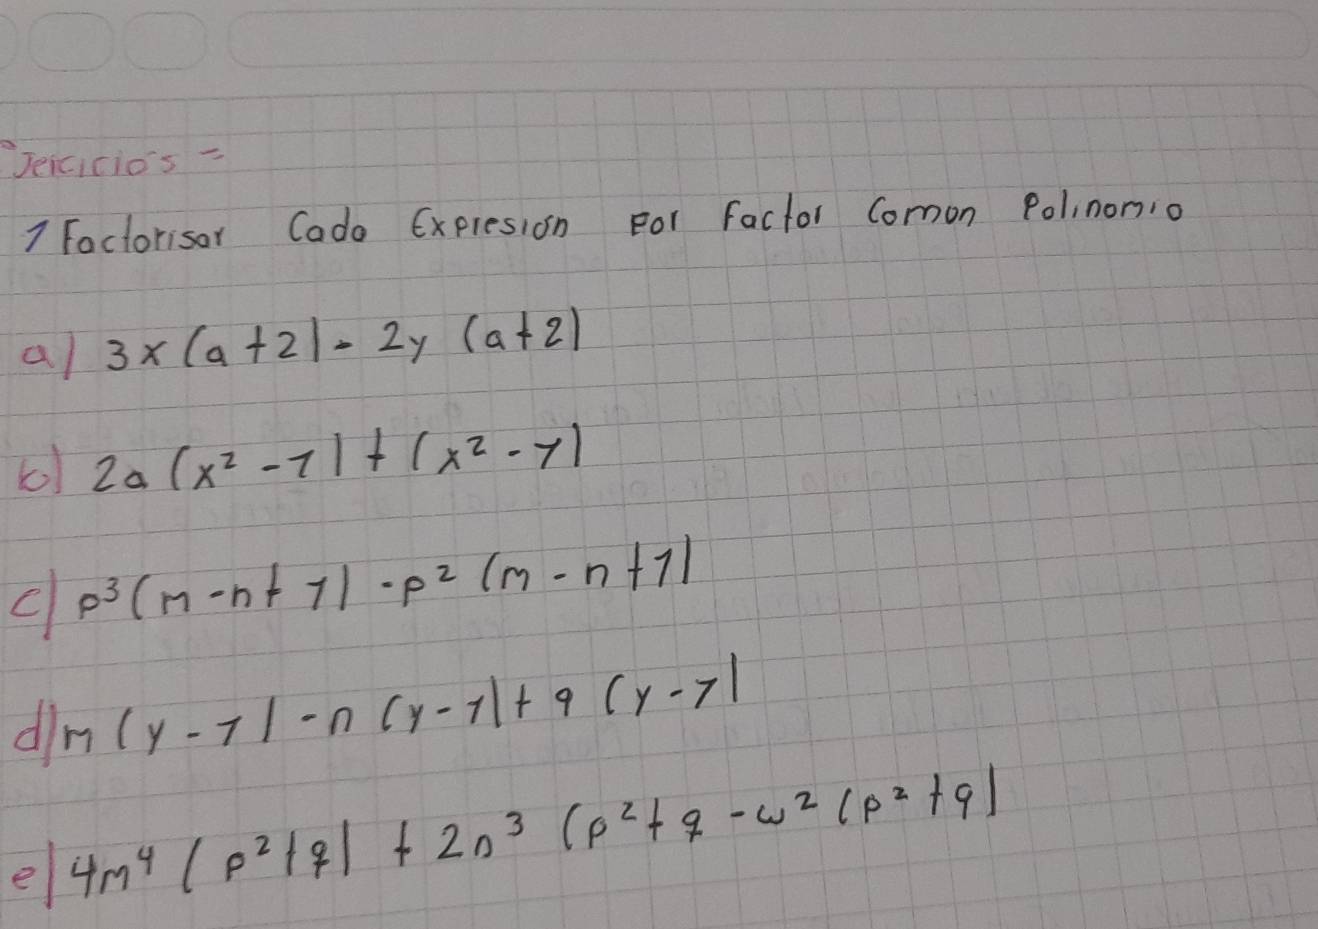 Ejercicios =
1 Factorisar Cada Expresión por factor Comon Polinomio
a) 3x (a + 2) - 2y (a + 2)
b) 2a (x² - 1) + (x² - 1)
c) p³ (m - n + 1) - p² (m - n + 1)
d) m (y - 1) - n (y - 1) + q (y - 1)
e) 4m⁴ (p² + q) + 2n³ (p² + q - w² (p² + q)